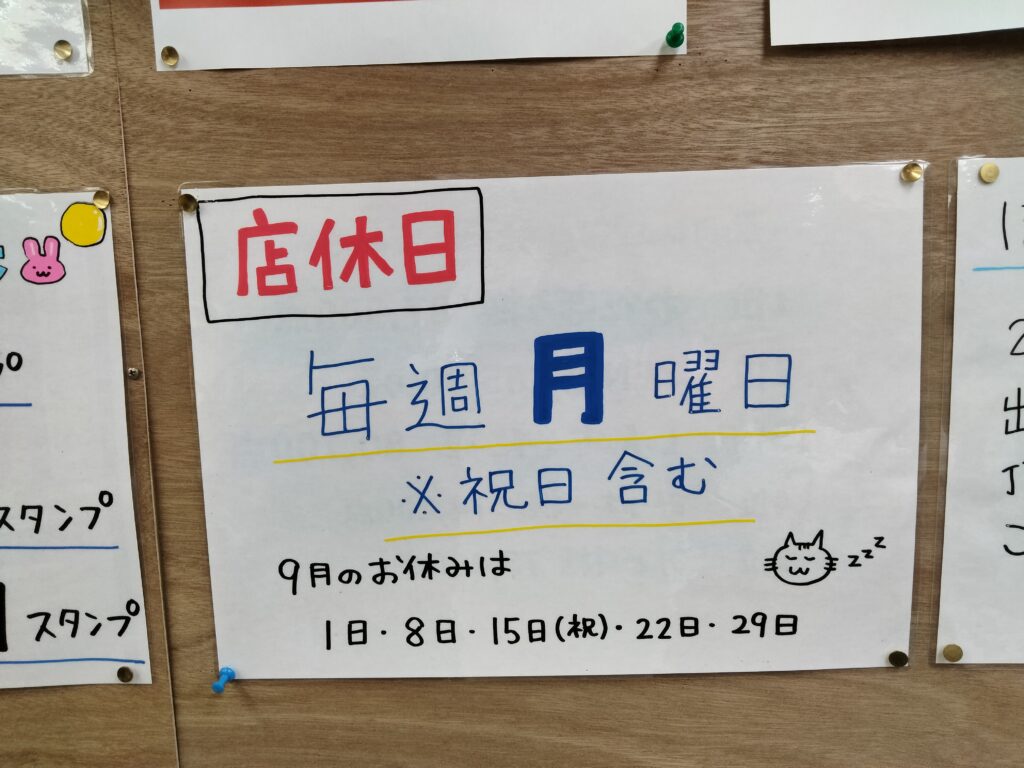 店休日
毎週 月 曜日
※祝日 含む
9月のお休みは
zzz
1日・8日・15日(祝)・22日・29日
スタンプ
スタンプ
2
出